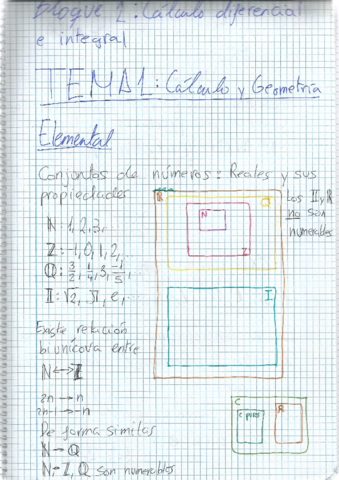 Bloque 1: Cálculo diferencial
e integral
TEMA 1: Cálculo y Geometría
Elemental
Conjuntos de números: Reales y sus
propiedades
ℕ: 1, 2, 3,
ℤ: -1, 0, 1, 2, ...
ℚ: 3/2, 1/4, 3, -1/5, ...
𝕀: √2, π, e, ...
R
Q
N
Z
I
Los 𝕀 y ℝ
no son
numerables
Existe relación
biunívoca entre
ℕ ↔ ℤ
2n → n
2n → -n
De forma similar
ℕ → ℚ
ℕ, ℤ, ℚ son numerables
C
C puros
R